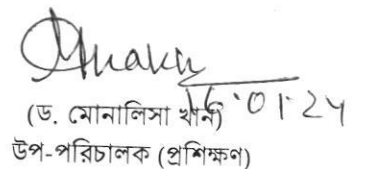 16.01.24
(ড. মোনালিসা খান)
উপ-পরিচালক (প্রশিক্ষণ)